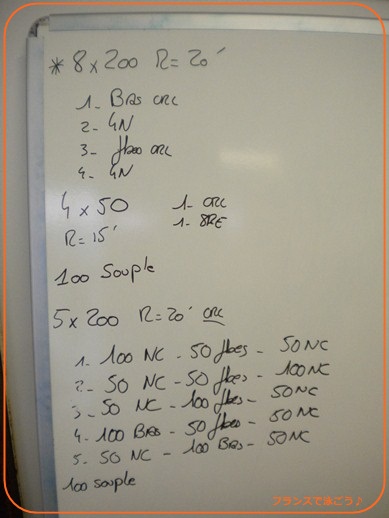 * 8 x 200 R = 20'
1- Bras CRC
2- 4N
3- jbes CRC
4- 4N
4 x 50 1- CRC
R = 15' 1- BRE
100 Souple
5 x 200 R = 20' CRC
1- 100 NC - 50 jbes - 50 NC
2- 50 NC - 50 jbes - 100 NC
3- 50 NC - 100 jbes - 50 NC
4- 100 Bras - 50 jbes - 50 NC
5- 50 NC - 100 Bras - 50 NC
100 souple
フランスで泳ごう♪